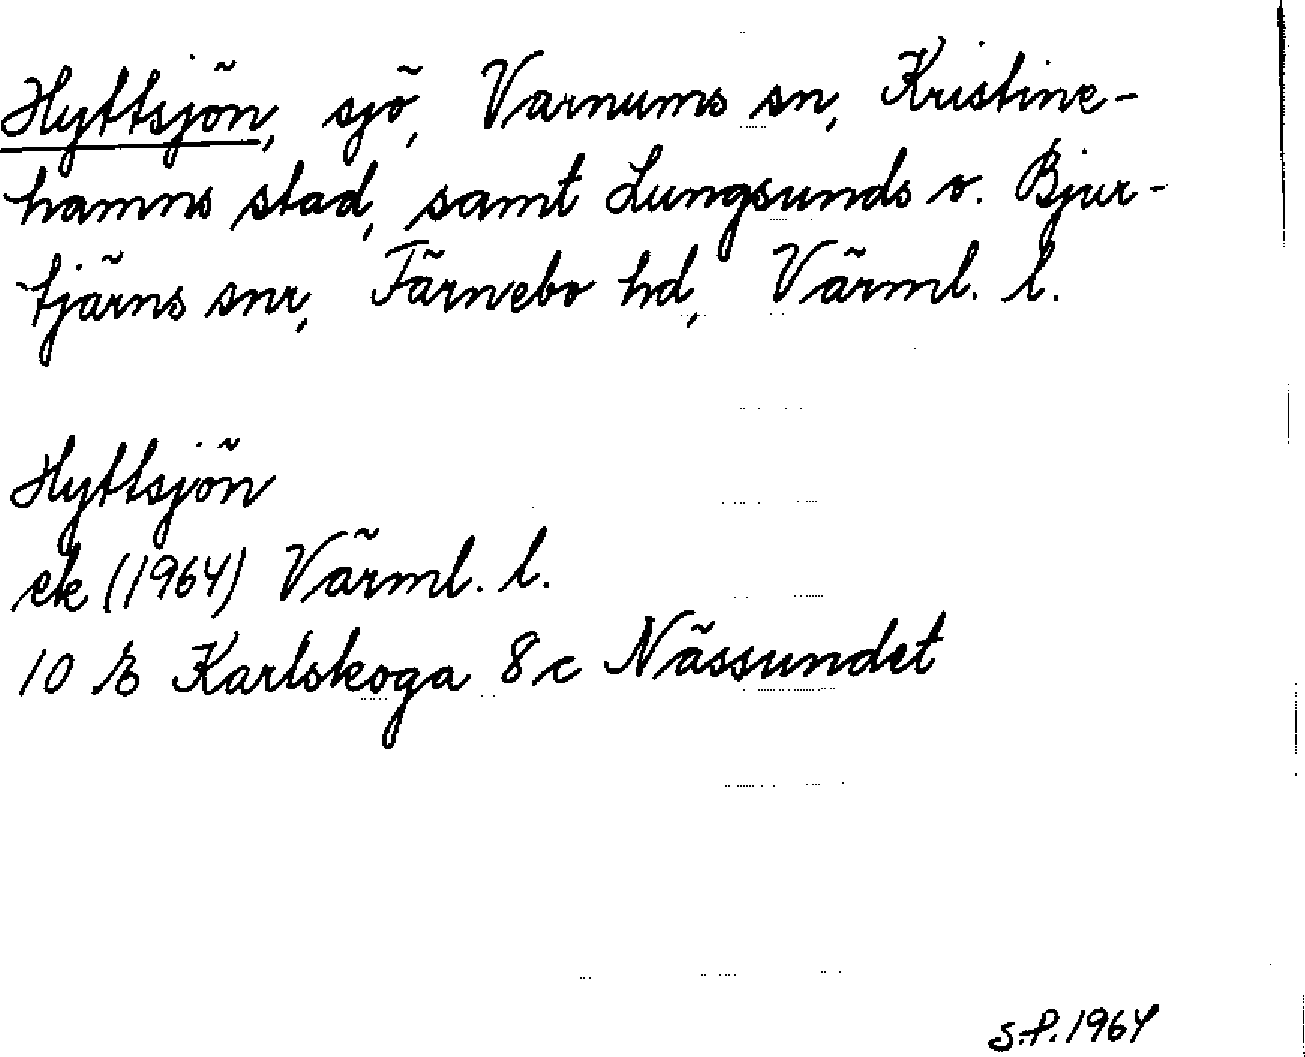 Hyttsjön, sjö, Varnums sn, Kristine-
hamns stad, samt Lungsunds o. Bjur-
tjärns snr, Färnebo hd, Värml. l.
Hyttsjön
ek (1964) Värml. l.
10 E Karlskoga 8 c Nässundet
S.P. 1964